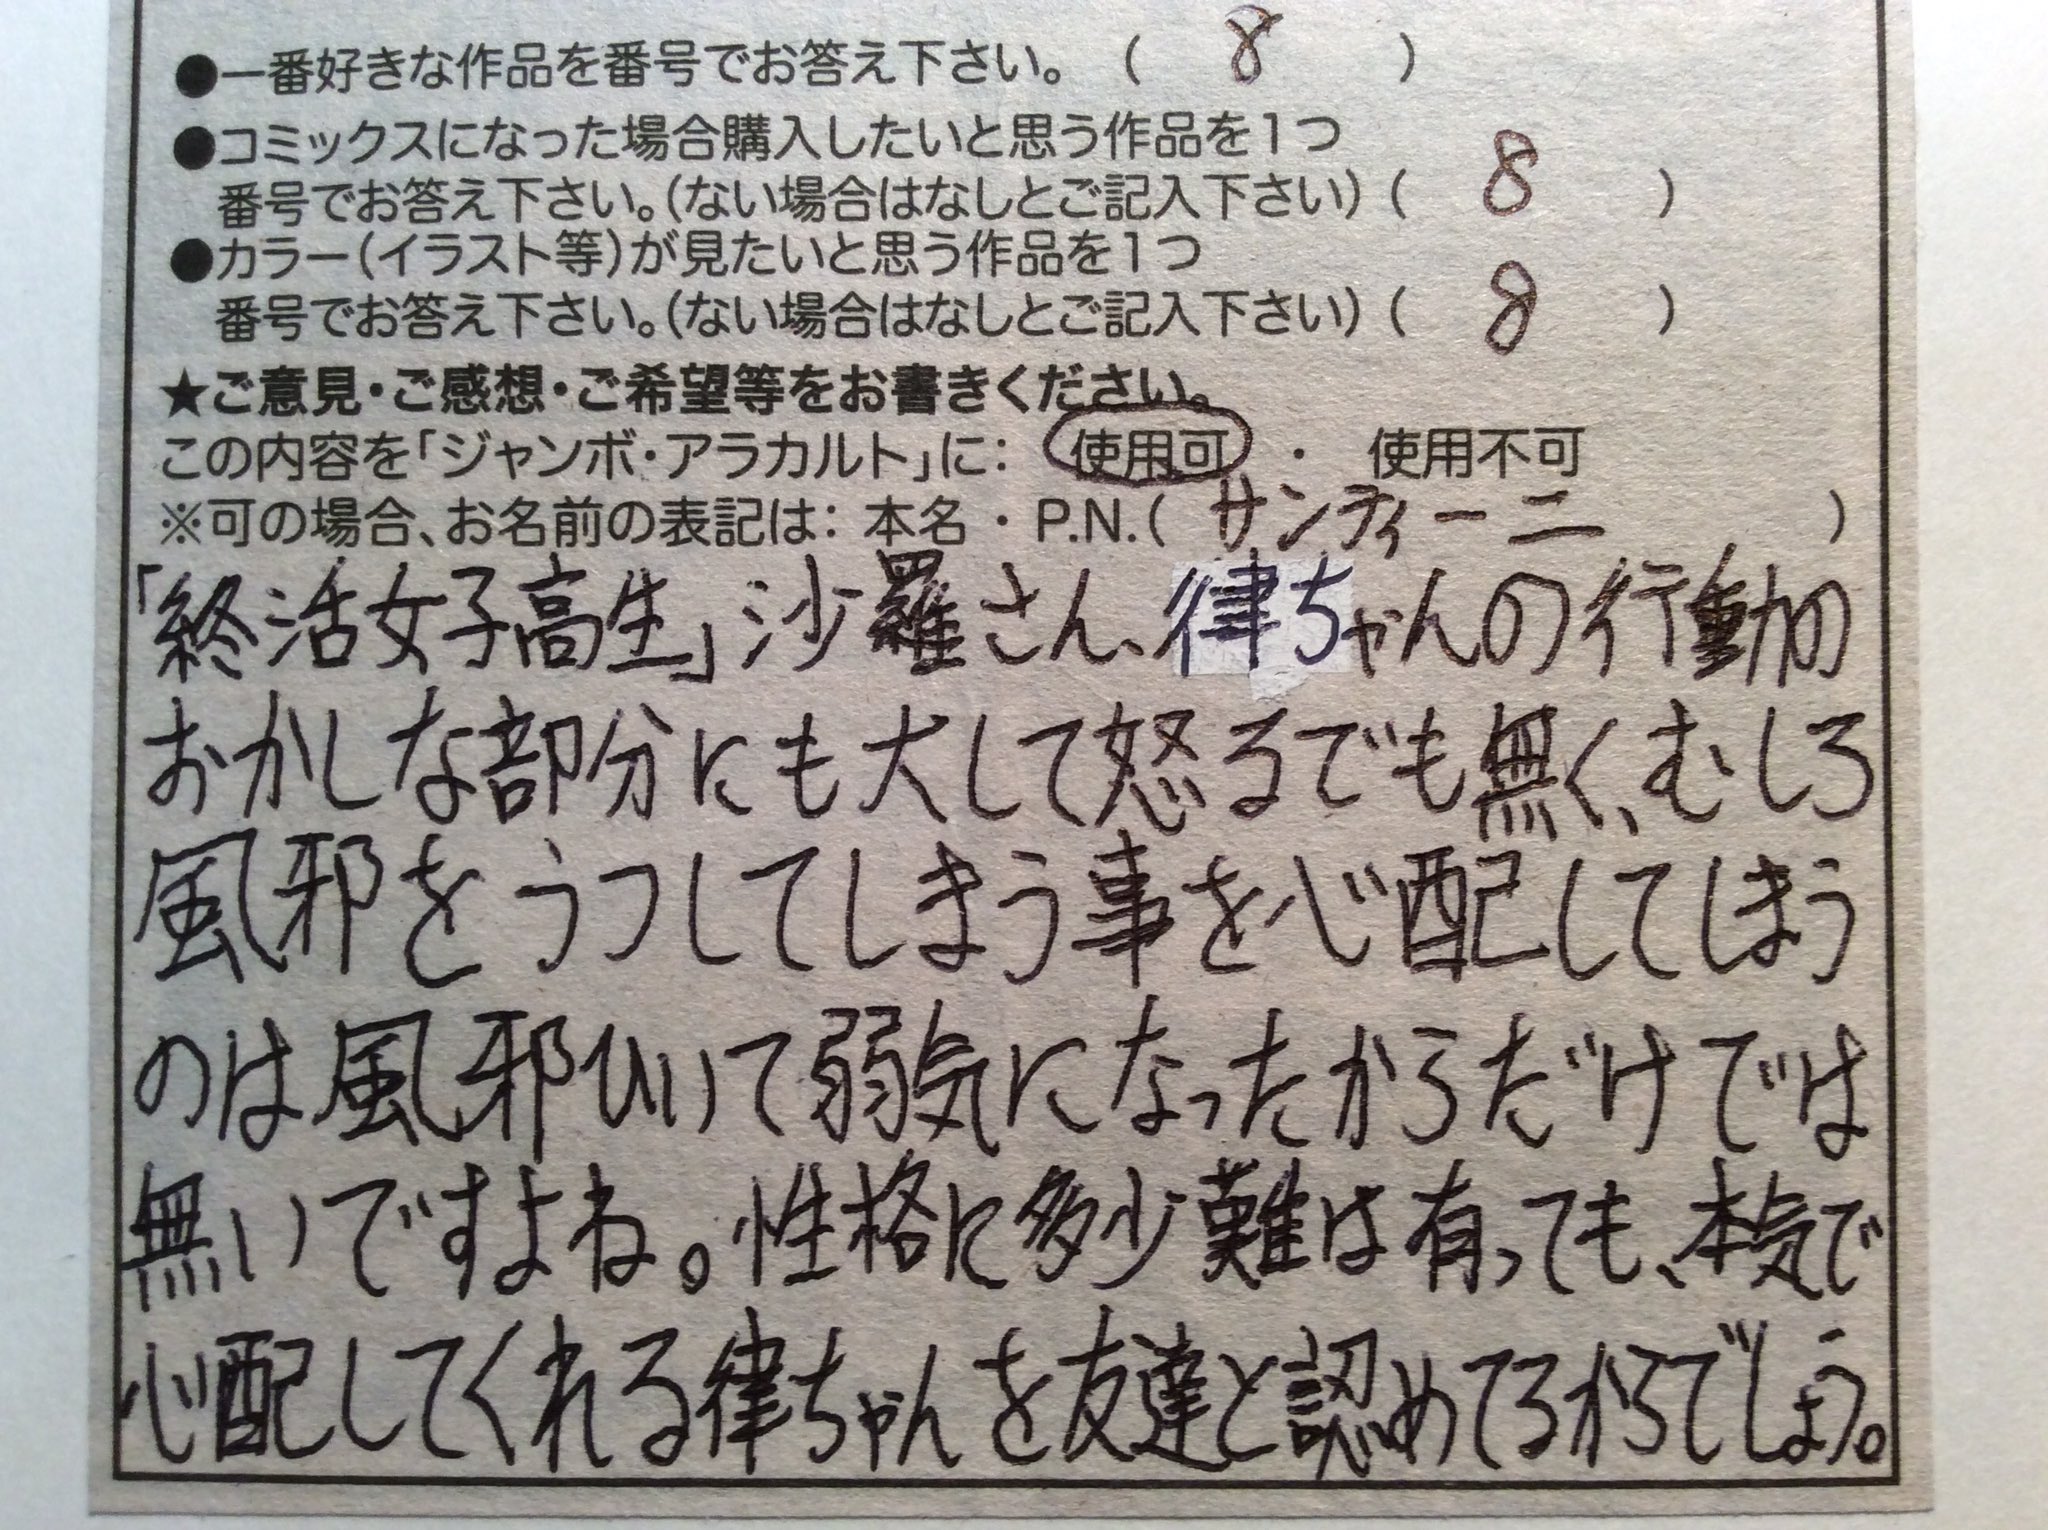 ●一番好きな作品を番号でお答え下さい。( 8 )
●コミックスになった場合購入したいと思う作品を1つ
番号でお答え下さい。(ない場合はなしとご記入下さい)( 8 )
●カラー(イラスト等)が見たいと思う作品を1つ
番号でお答え下さい。(ない場合はなしとご記入下さい)( 8 )
★ご意見・ご感想・ご希望等をお書きください。
この内容を「ジャンボ・アラカルト」に: 使用可 ・ 使用不可
※可の場合、お名前の表記は: 本名 ・ P.N.( サンティーニ )
「終活女子高生」沙羅さん、律ちゃんの行動の
おかしな部分にも大して怒るでも無く、むしろ
風邪をうつしてしまう事を心配してしまう
のは風邪ひいて弱気になったからだけでは
無いですよね。性格に多少難は有っても、本気で
心配してくれる律ちゃんを友達と認めてるからでしょう。